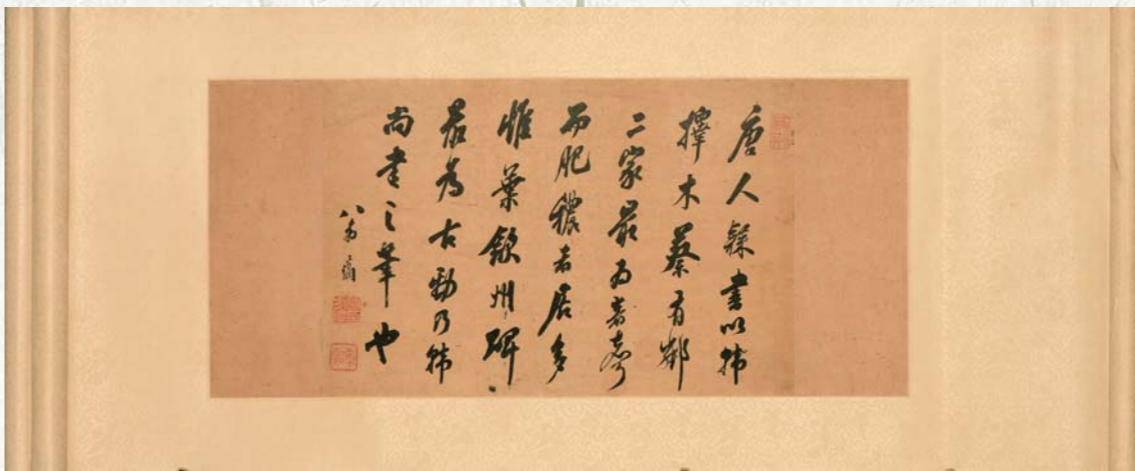 唐人隸書以韓
擇木蔡有鄰
二家最為著
而肥穠者居多
惟葉歙州碑
最為古勁乃韓
尚書之筆也
八